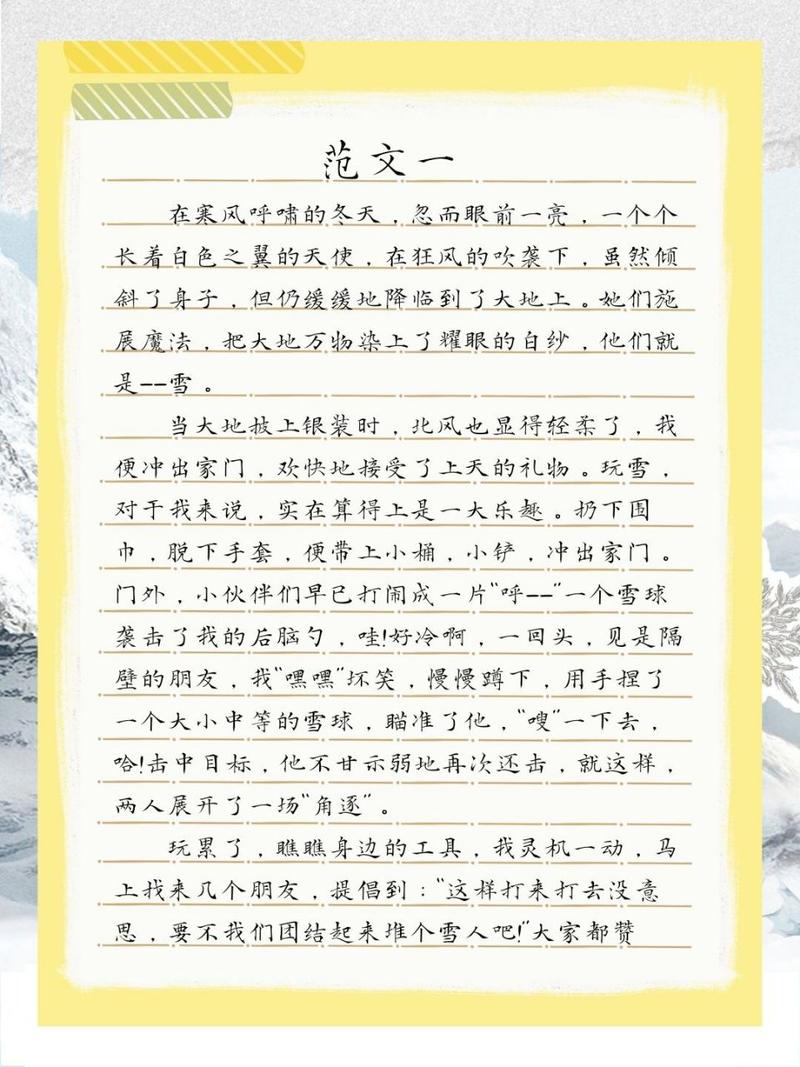 范文一
在寒风呼啸的冬天，忽而眼前一亮，一个个
长着白色之翼的天使，在狂风的吹袭下，虽然倾
斜了身子，但仍缓缓地降临到了大地上。她们施
展魔法，把大地万物染上了耀眼的白纱，他们就
是--雪。
当大地披上银装时，北风也显得轻柔了，我
便冲出家门，欢快地接受了上天的礼物。玩雪，
对于我来说，实在算得上是一大乐趣。扔下围
巾，脱下手套，便带上小桶，小铲，冲出家门。
门外，小伙伴们早已打闹成一片“呼--”一个雪球
袭击了我的后脑勺，哇!好冷啊，一回头，见是隔
壁的朋友，我“嘿嘿”坏笑，慢慢蹲下，用手捏了
一个大小中等的雪球，瞄准了他，“嗖”一下去，
哈!击中目标，他不甘示弱地再次还击，就这样，
两人展开了一场“角逐”。
玩累了，瞧瞧身边的工具，我灵机一动，马
上找来几个朋友，提倡到：“这样打来打去没意
思，要不我们团结起来堆个雪人吧!”大家都赞